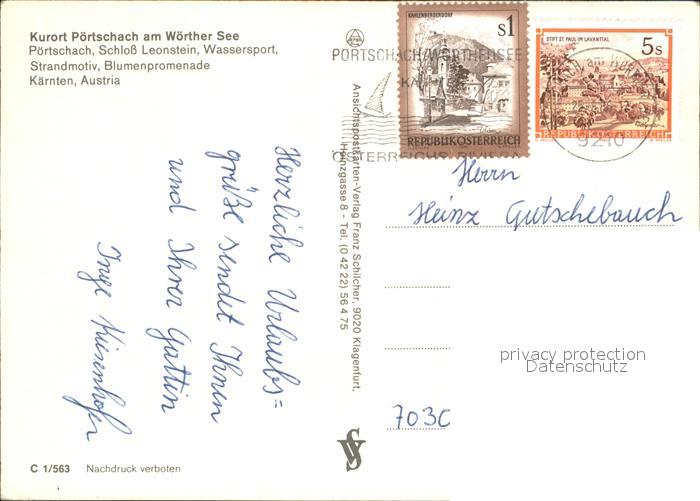 Kurort Pörtschach am Wörther See
Pörtschach, Schloß Leonstein, Wassersport,
Strandmotiv, Blumenpromenade
Kärnten, Austria
KAHLENBERGERDORF
s1
REPUBLIK ÖSTERREICH
STIFT ST. PAUL IM LAVANTTAL
5s
REPUBLIK ÖSTERREICH
PÖRTSCHACH/WÖRTHERSEE
ÖSTERREICHS RIVIERA
9210
Herzliche Urlaubs=
grüße sendet Ihnen
und Ihrer Gattin
Inge Kiesenhofer
Ansichtspostkarten-Verlag Franz Schilcher, 9020 Klagenfurt,
Heinzgasse 8 - Tel. (0 42 22) 56 4 75
Herrn
Heinz Gutschebauch
privacy protection
Datenschutz
7030
C 1/563 Nachdruck verboten